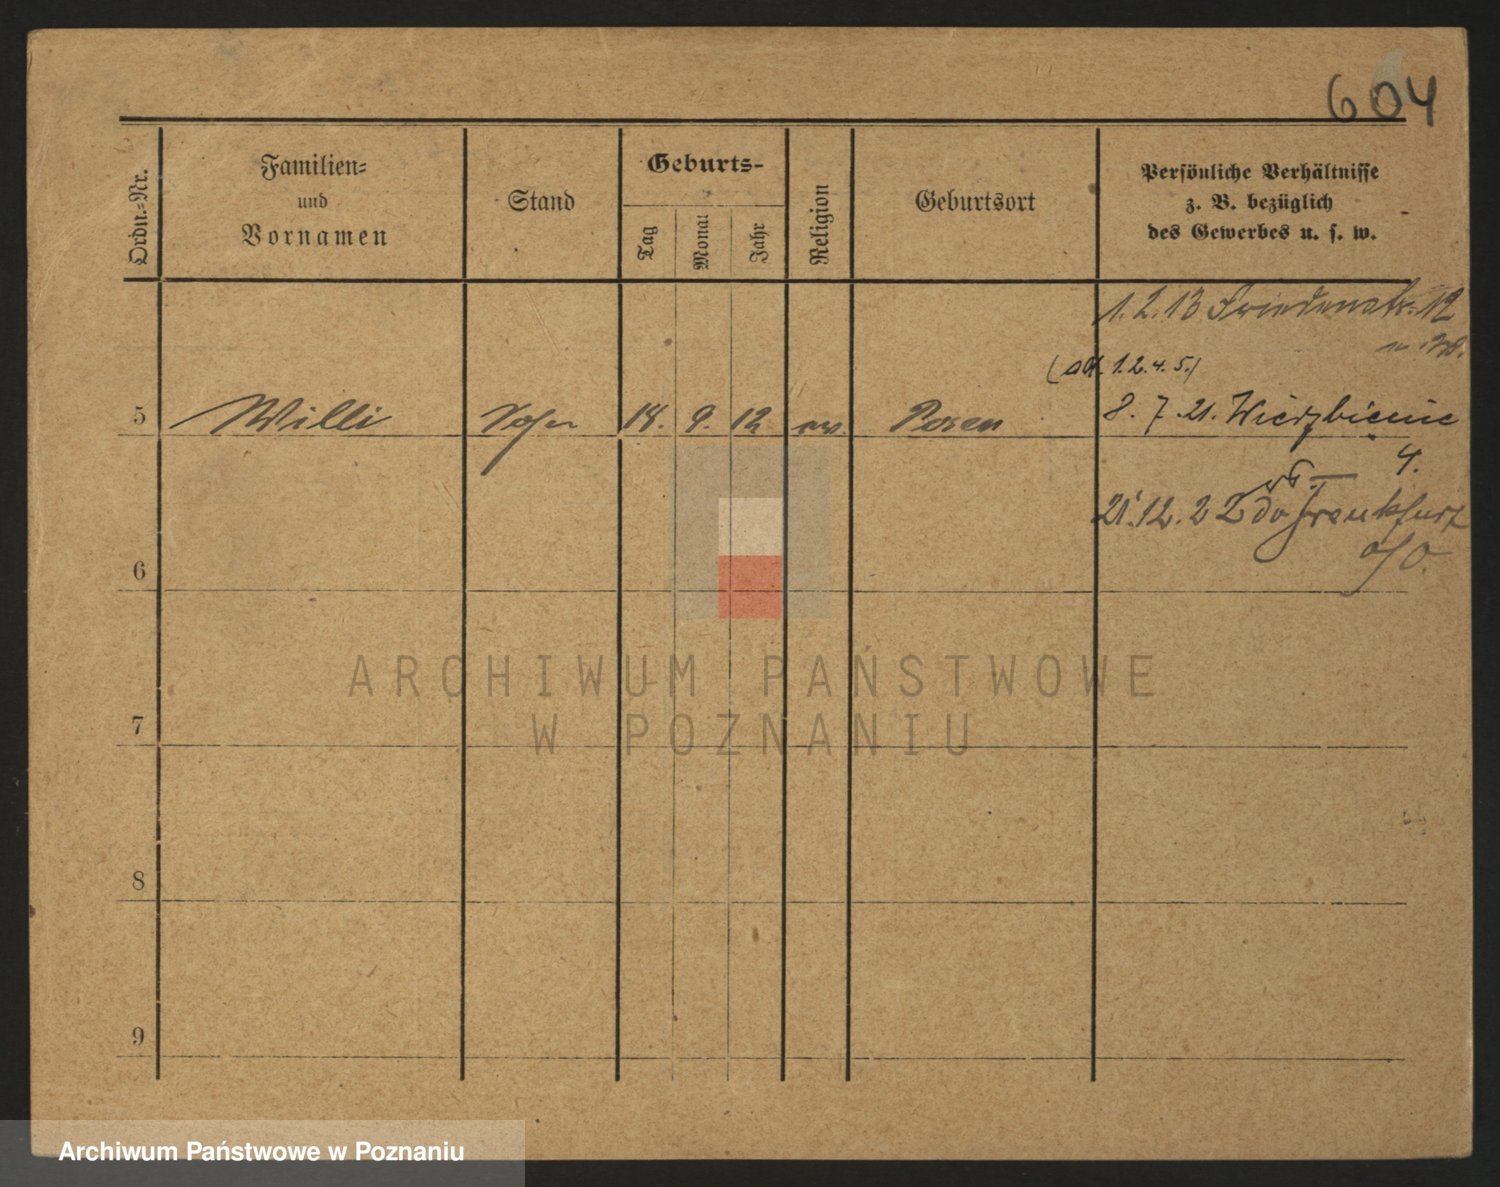 604
Ordn.-Nr.
Familien-
und
Vornamen
Stand
Geburts-
Tag
Monat
Jahr
Religion
Geburtsort
Persönliche Verhältnisse
z. B. bezüglich
des Gewerbes u. s. w.
1. 2. 13 Friedenstr. 12
(adt. 1. 2. 4. 5.)
5 Willi Sohn 18. 9. 12 ev. Posen 8. 7. 21. Wierzbiecice
4.
21. 12. 22 do Frankfurt
a/O.
6
7
8
9
ARCHIWUM PAŃSTWOWE
W POZNANIU
Archiwum Państwowe w Poznaniu